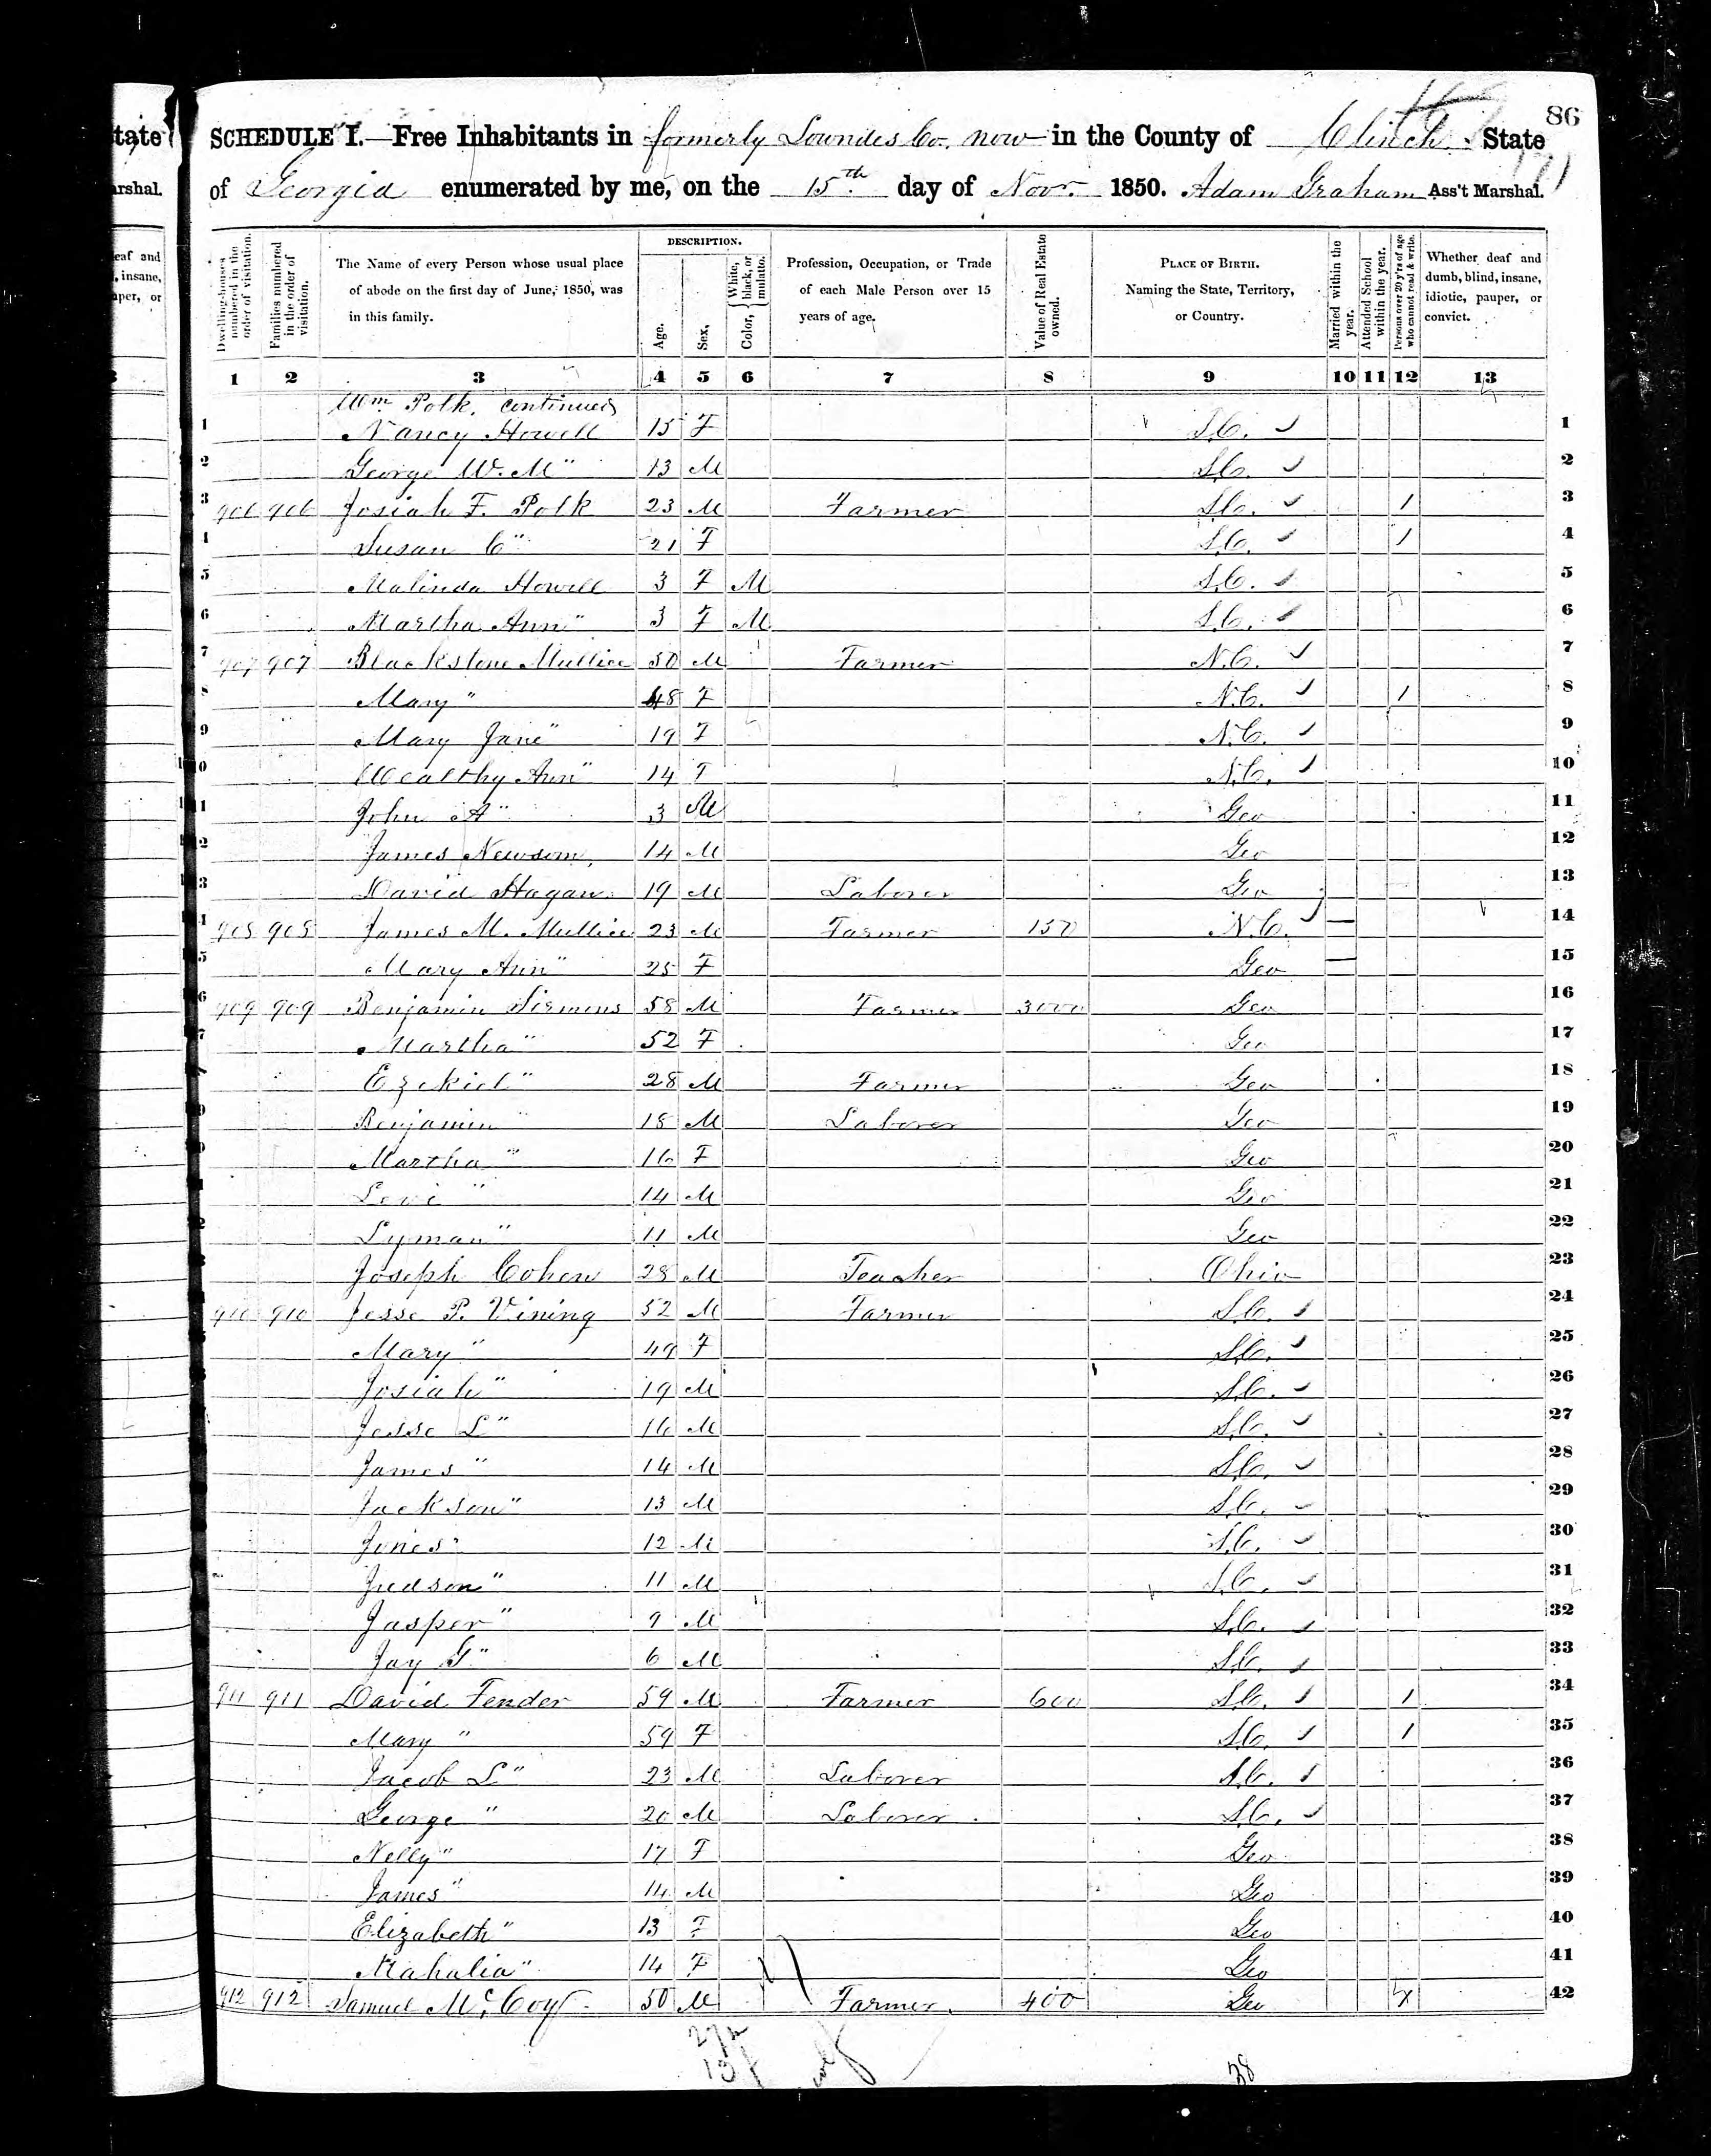 86
SCHEDULE I.—Free Inhabitants in formerly Lowndes Co. now in the County of Clinch State
of Georgia enumerated by me, on the 15th day of Novr. 1850. Adam Graham Ass't Marshal.
tate
arshal.
eaf and
, insane,
aper, or
Dwelling-houses numbered in the order of visitation.
Families numbered in the order of visitation.
The Name of every Person whose usual place of abode on the first day of June, 1850, was in this family.
DESCRIPTION.
Age.
Sex,
Color, White, black, or mulatto.
Profession, Occupation, or Trade of each Male Person over 15 years of age.
Value of Real Estate owned.
PLACE OF BIRTH. Naming the State, Territory, or Country.
Married within the year.
Attended School within the year.
Persons over 20 y'rs of age who cannot read & write.
Whether deaf and dumb, blind, insane, idiotic, pauper, or convict.
1 2 3 4 5 6 7 8 9 10 11 12 13
Wm Polk, continued
1 Nancy Howell 15 F S.C. 1
2 George W. M " 13 M S.C. 2
3 906 906 Josiah F. Polk 23 M Farmer S.C. 1 3
4 Susan C " 21 F S.C. 1 4
5 Malinda Howell 3 F M S.C. 5
6 Martha Ann " 3 F M S.C. 6
7 907 907 Blackstone Mullice 50 M Farmer N.C. 7
8 Mary " 48 F N.C. 1 8
9 Mary Jane " 19 F N.C. 9
10 Wealthy Ann " 14 F N.C. 10
11 John A " 3 M Geo 11
12 James Newsom 14 M Geo 12
13 David Hagan 19 M Laborer Geo 13
14 908 908 James M. Mullice 23 M Farmer 150 N.C. — 14
15 Mary Ann " 25 F Geo — 15
16 909 909 Benjamin Sirmens 58 M Farmer 3000 Geo 16
17 Martha " 52 F Geo 17
18 Ezekiel " 28 M Farmer Geo 18
19 Benjamin " 18 M Laborer Geo 19
20 Martha " 16 F Geo 20
21 Levi " 14 M Geo 21
22 Lyman " 11 M Geo 22
23 Joseph Cohen 28 M Teacher Ohio 23
24 910 910 Jesse P. Vining 52 M Farmer S.C. 24
25 Mary " 49 F S.C. 25
26 Josiah " 19 M S.C. 26
27 Jesse L " 16 M S.C. 27
28 James " 14 M S.C. 28
29 Jackson " 13 M S.C. 29
30 Jones " 12 M S.C. 30
31 Judson " 11 M S.C. 31
32 Jasper " 9 M S.C. 32
33 Jay G " 6 M S.C. 33
34 911 911 David Fender 59 M Farmer 600 S.C. 1 34
35 Mary " 59 F S.C. 1 35
36 Jacob L " 23 M Laborer S.C. 36
37 George " 20 M Laborer S.C. 37
38 Nelly " 17 F Geo 38
39 James " 14 M Geo 39
40 Elizabeth " 13 F Geo 40
41 Mahalia " 14 F Geo 41
42 912 912 Samuel McCoy 50 M Farmer 400 Geo X 42
38